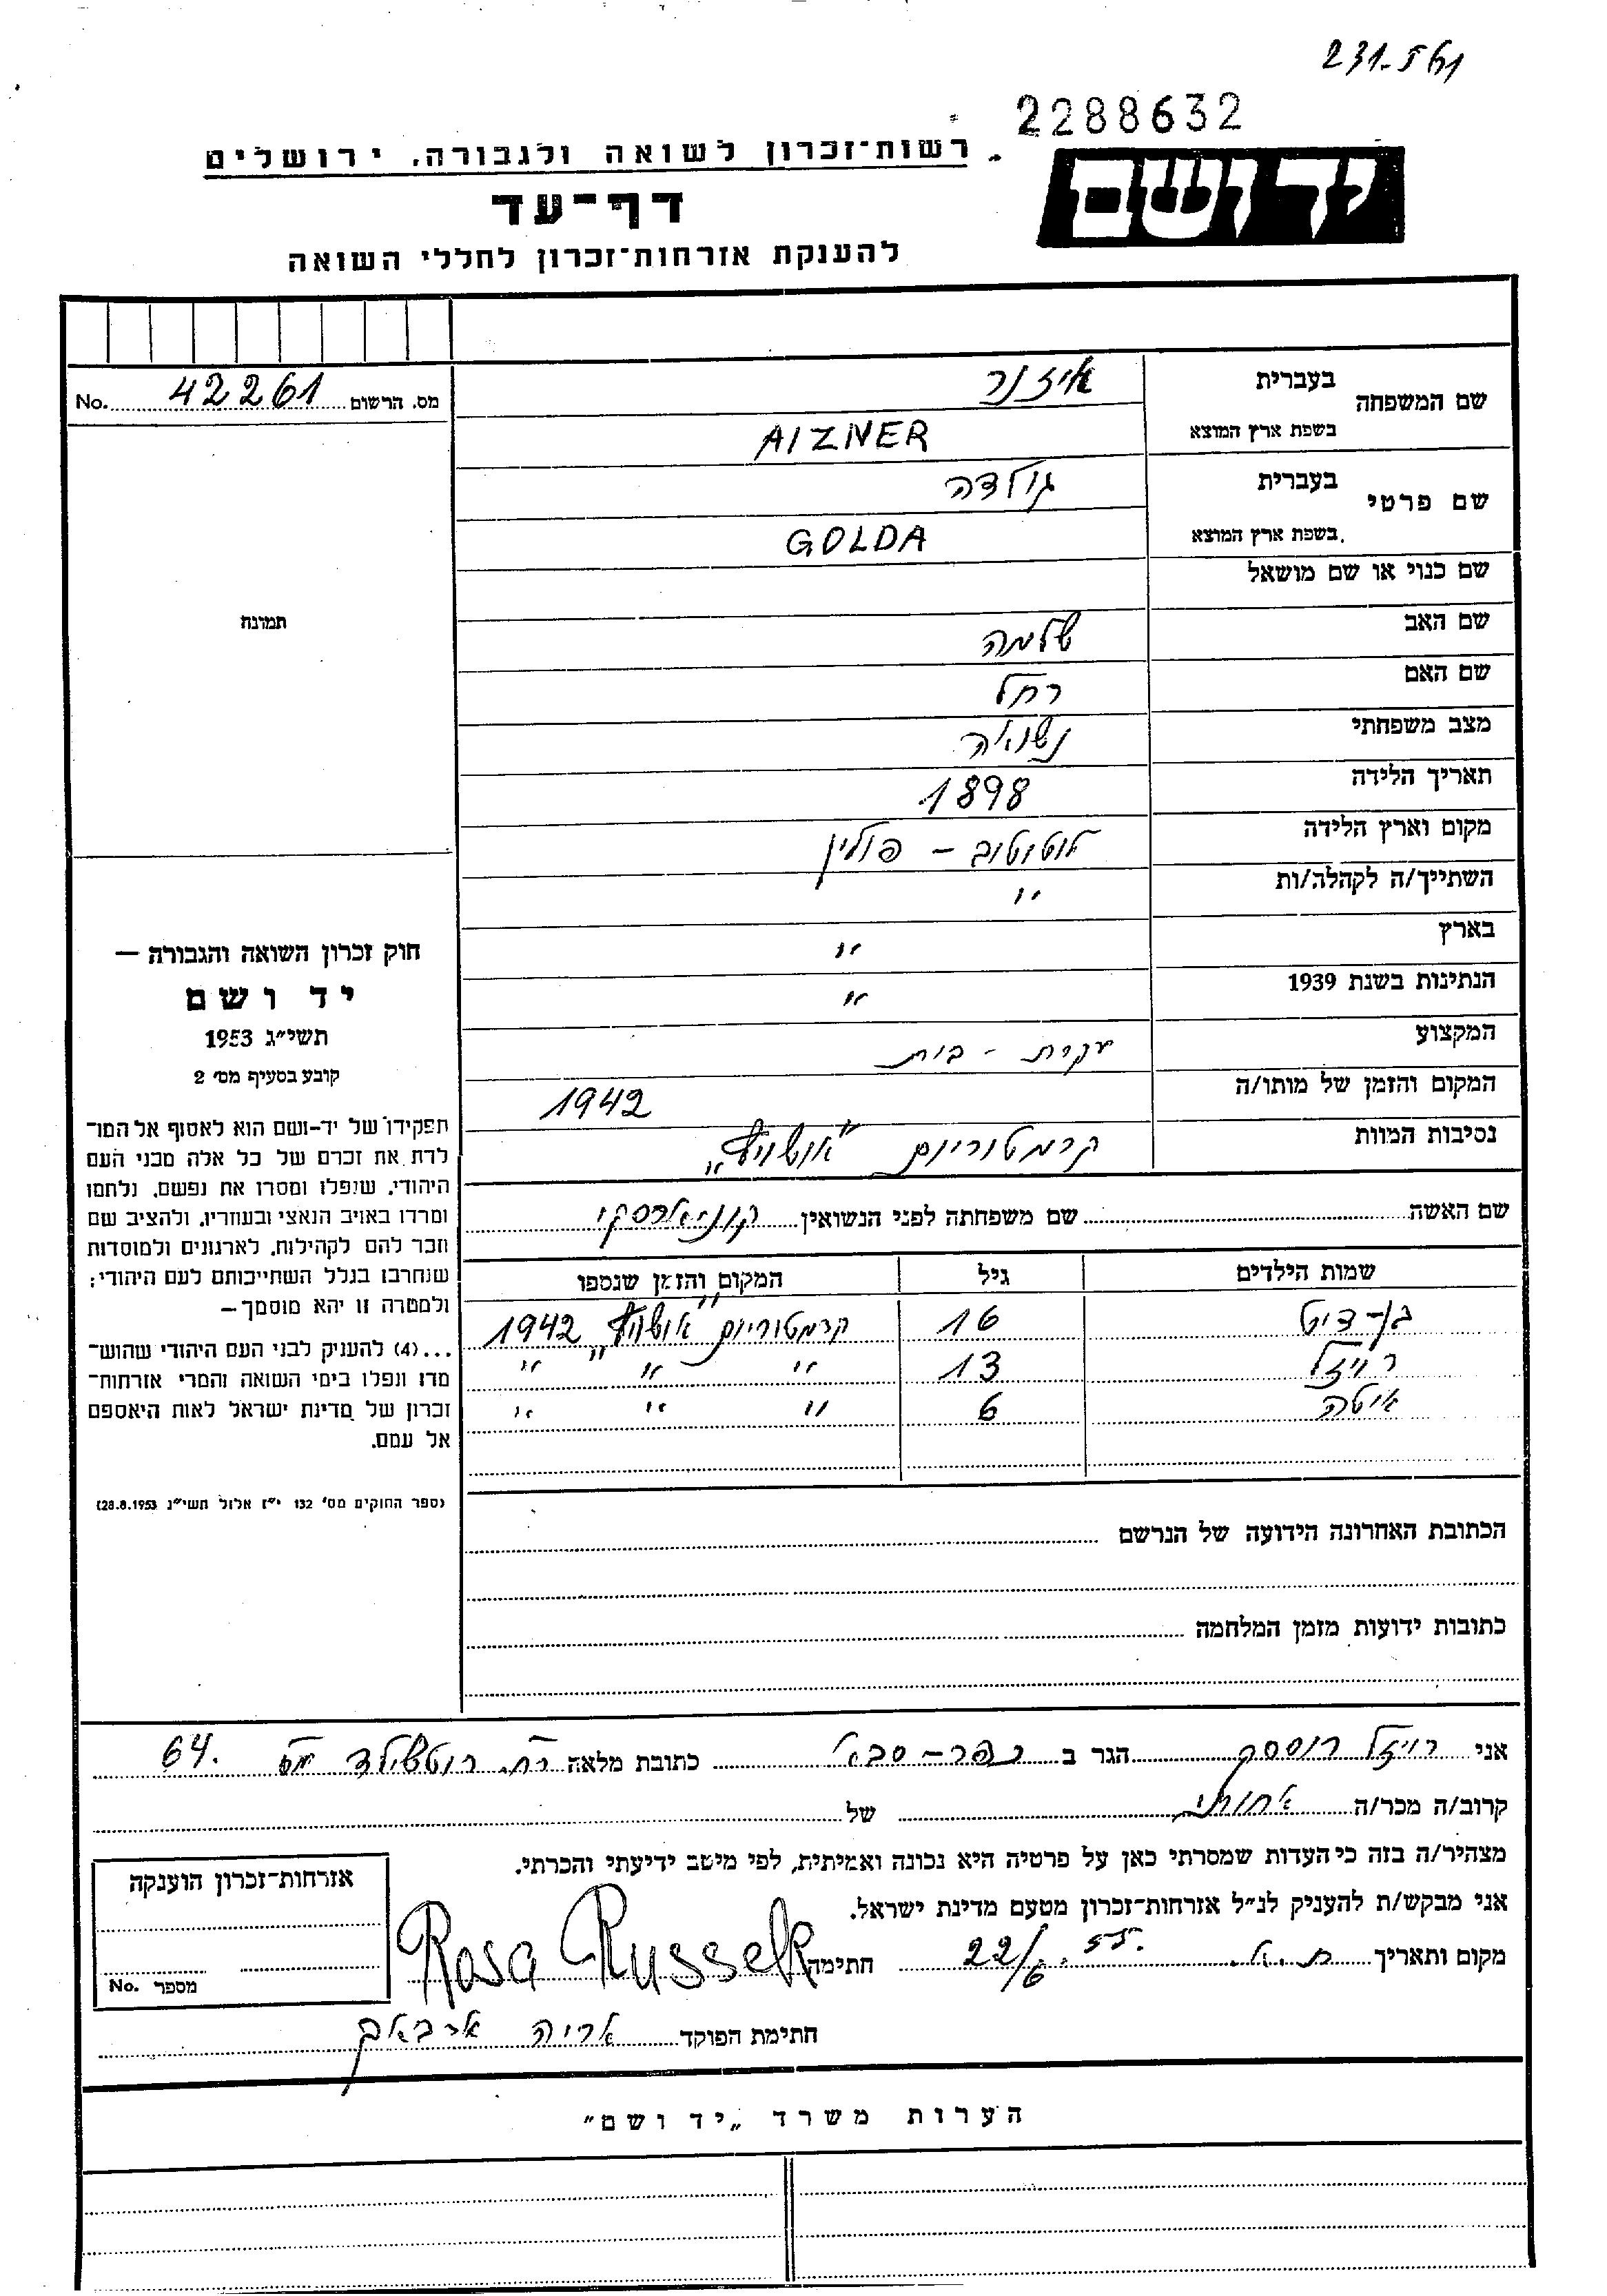 231.561
2288632
רשות־זכרון לשואה ולגבורה, ירושלים
יד ושם
דף־עד
להענקת אזרחות־זכרון לחללי השואה
מס. הרשום 42261 No.
שם המשפחה בעברית איזנר
בשפת ארץ המוצא AIZNER
שם פרטי בעברית גולדה
בשפת ארץ המוצא GOLDA
שם כנוי או שם מושאל
שם האב שלמה
שם האם רחל
מצב משפחתי נשואה
תאריך הלידה 1898
מקום וארץ הלידה לוטוטוב - פולין
השתייך/ה לקהלה/ות "
בארץ "
הנתינות בשנת 1939 "
המקצוע עקרת - בית
המקום והזמן של מותו/ה 1942
נסיבות המוות קרמטוריום "אושויץ"
שם האשה שם משפחתה לפני הנשואין קוניארסקי
שמות הילדים גיל המקום והזמן שנספו
16 קרמטוריום "אושויץ" 1942
רויזל 13 " " " "
איטה 6 " " " "
הכתובת האחרונה הידועה של הנרשם
כתובות ידועות מזמן המלחמה
תמונה
חוק זכרון השואה והגבורה —
יד ושם
תשי״ג 1953
קובע בסעיף מס׳ 2
תפקידו של יד-ושם הוא לאסוף אל המו־
לדת את זכרם של כל אלה מבני העם
היהודי, שנפלו ומסרו את נפשם, נלחמו
ומרדו באויב הנאצי ובעוזריו, ולהציב שם
וזכר להם לקהילות, לארגונים ולמוסדות
שנחרבו בגלל השתייכותם לעם היהודי;
ולמטרה זו יהא מוסמך–
...(4) להעניק לבני העם היהודי שהוש־
מדו ונפלו בימי השואה והמרי אזרחות־
זכרון של מדינת ישראל לאות היאספם
אל עמם.
(ספר החוקים מס׳ 132 י״ז אלול תשי״ג 28.8.1953)
אני רויזל רוססק הגר ב כפר-סבא כתובת מלאה רח. רוטשילד מס 64.
קרוב/ה מכר/ה אחותי של
מצהיר/ה בזה כי העדות שמסרתי כאן על פרטיה היא נכונה ואמיתית, לפי מיטב ידיעתי והכרתי.
אני מבקש/ת להעניק לנ״ל אזרחות־זכרון מטעם מדינת ישראל.
מקום ותאריך ת.א. 22/6.55. חתימה Rosa Russek
חתימת הפוקד אריה
אזרחות־זכרון הוענקה
מספר No.
הערות משרד „יד ושם״